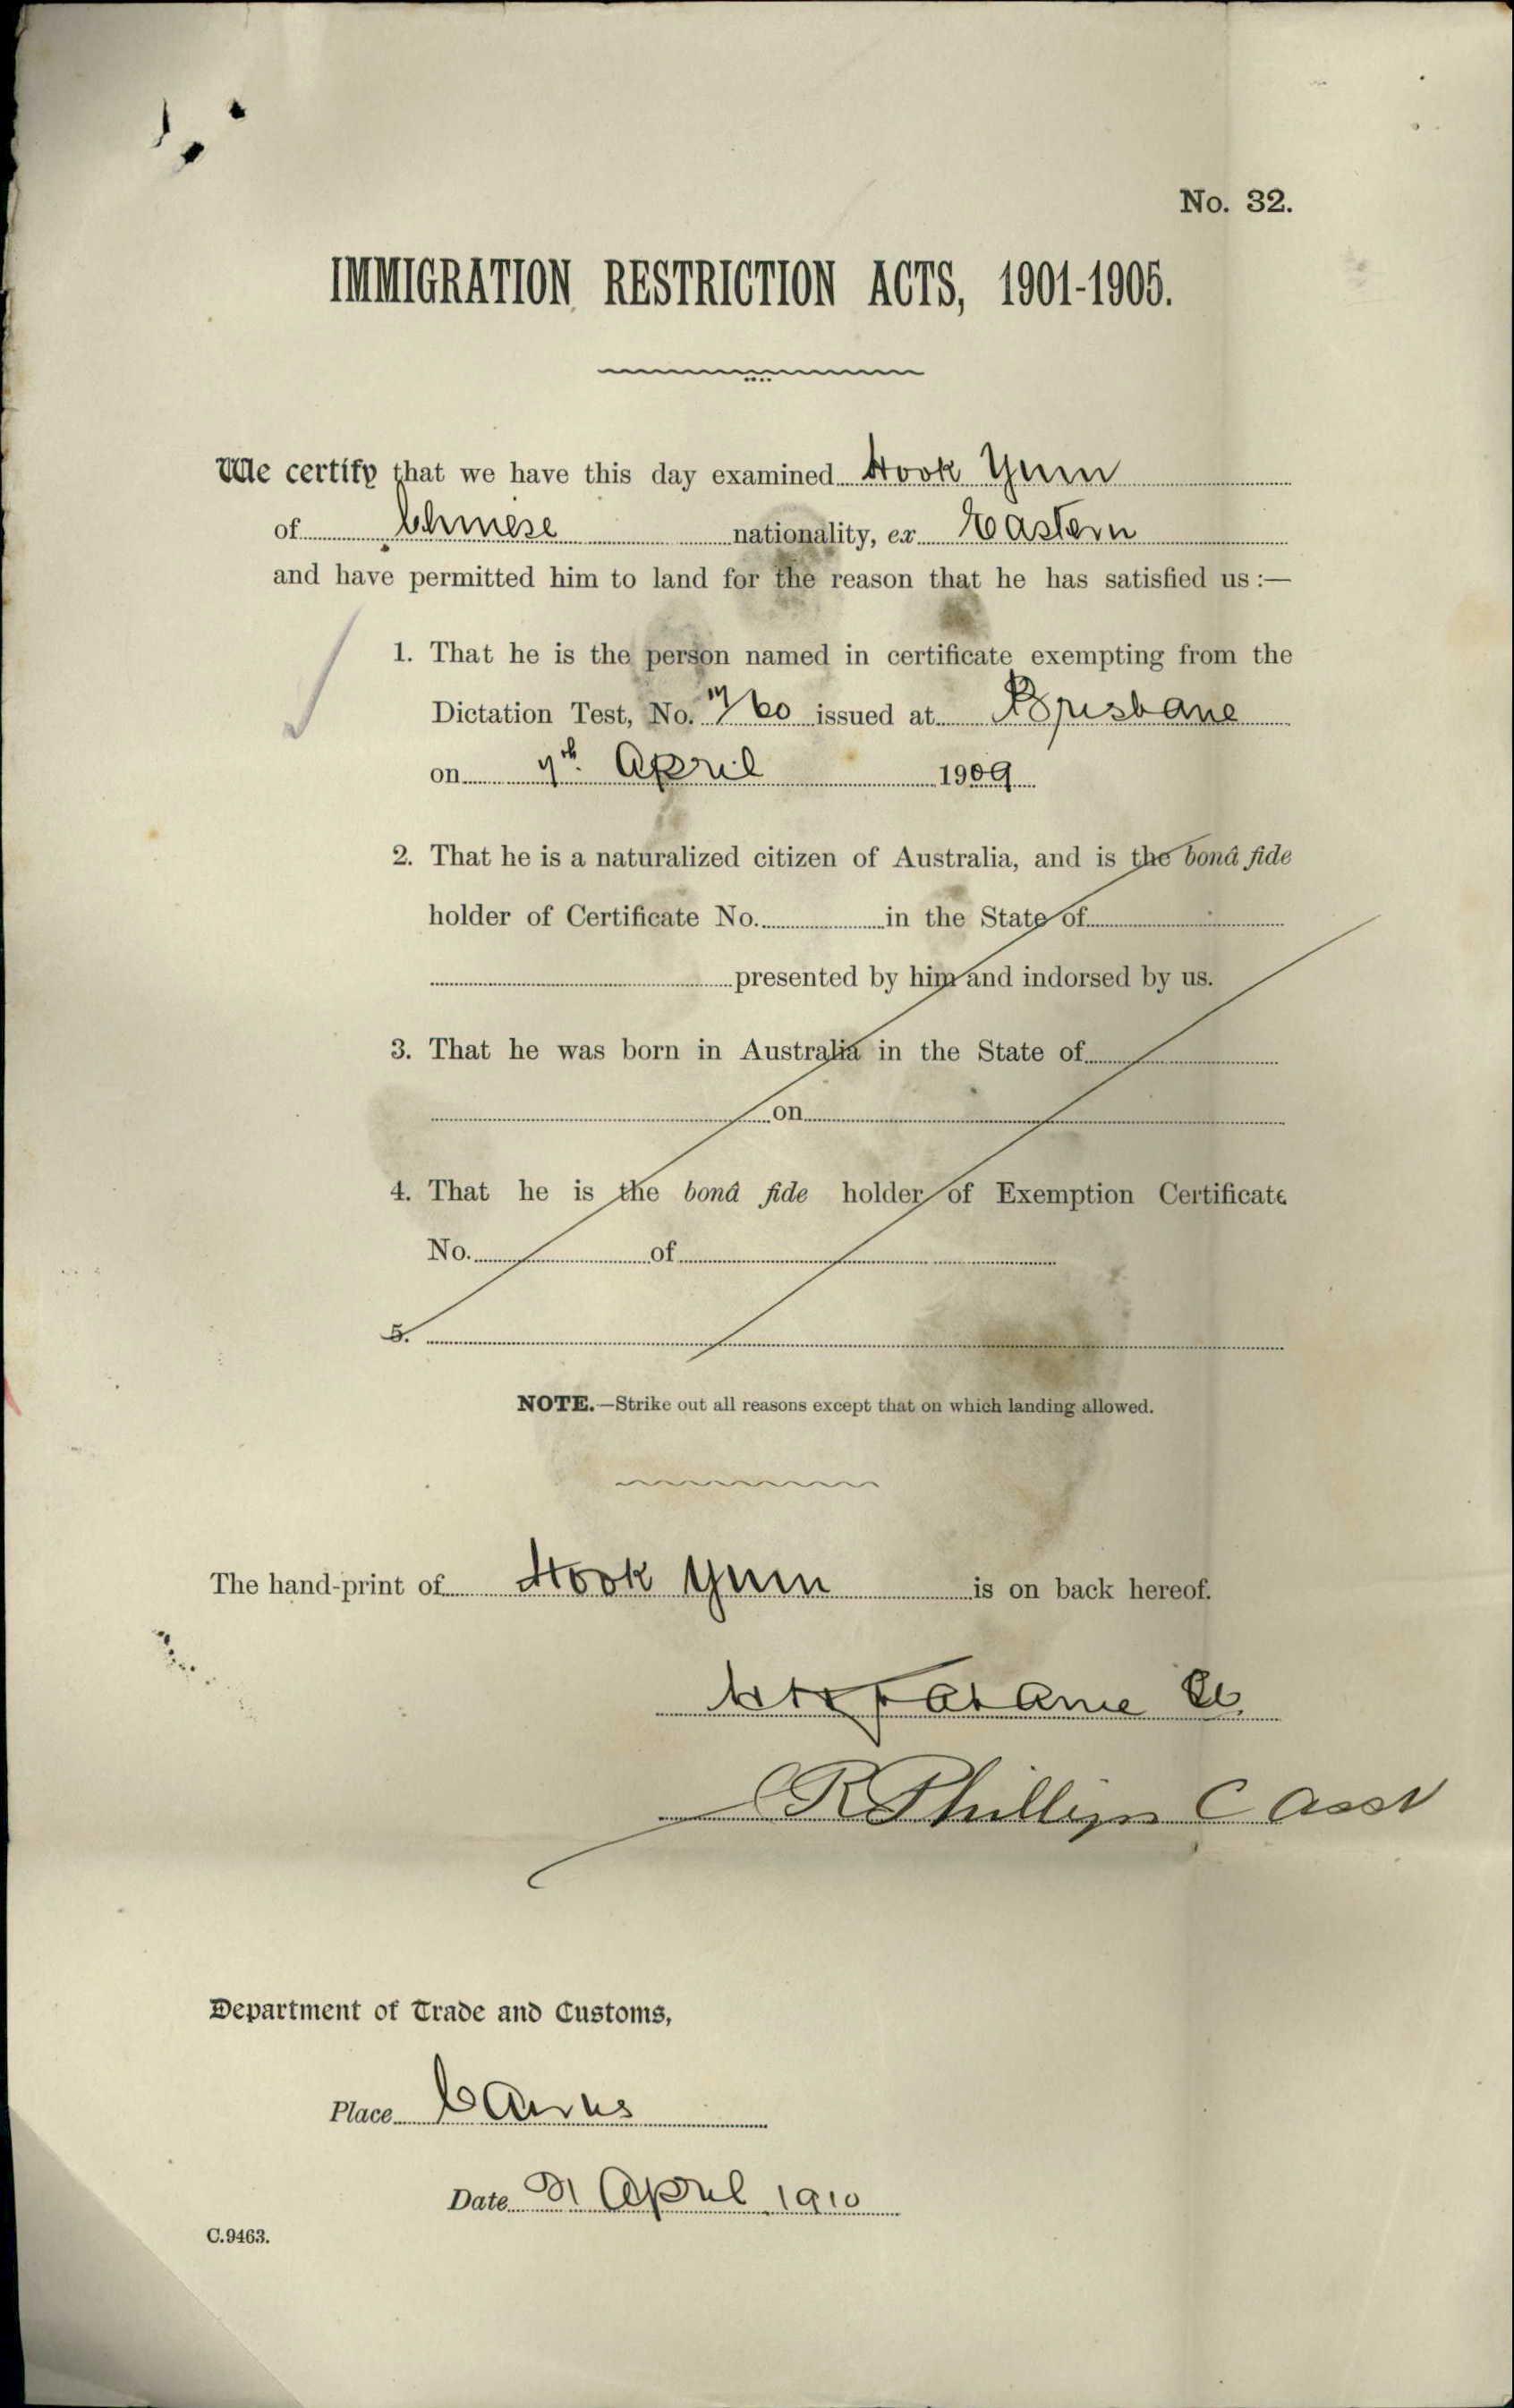 No. 32.
IMMIGRATION RESTRICTION ACTS, 1901-1905.
We certify that we have this day examined Hook Yum
of Chinese nationality, ex Eastern
and have permitted him to land for the reason that he has satisfied us :—
1. That he is the person named in certificate exempting from the
Dictation Test, No. /60 issued at Brisbane
on 7th. April 1909
2. That he is a naturalized citizen of Australia, and is the bonâ fide
holder of Certificate No. in the State of
presented by him and indorsed by us.
3. That he was born in Australia in the State of
on
4. That he is the bonâ fide holder of Exemption Certificate
No. of
5.
NOTE.—Strike out all reasons except that on which landing allowed.
The hand-print of Hook Yum is on back hereof.
R Phillips C Asst
Department of Trade and Customs,
Place Cairns
Date 21 April 1910
C.9463.